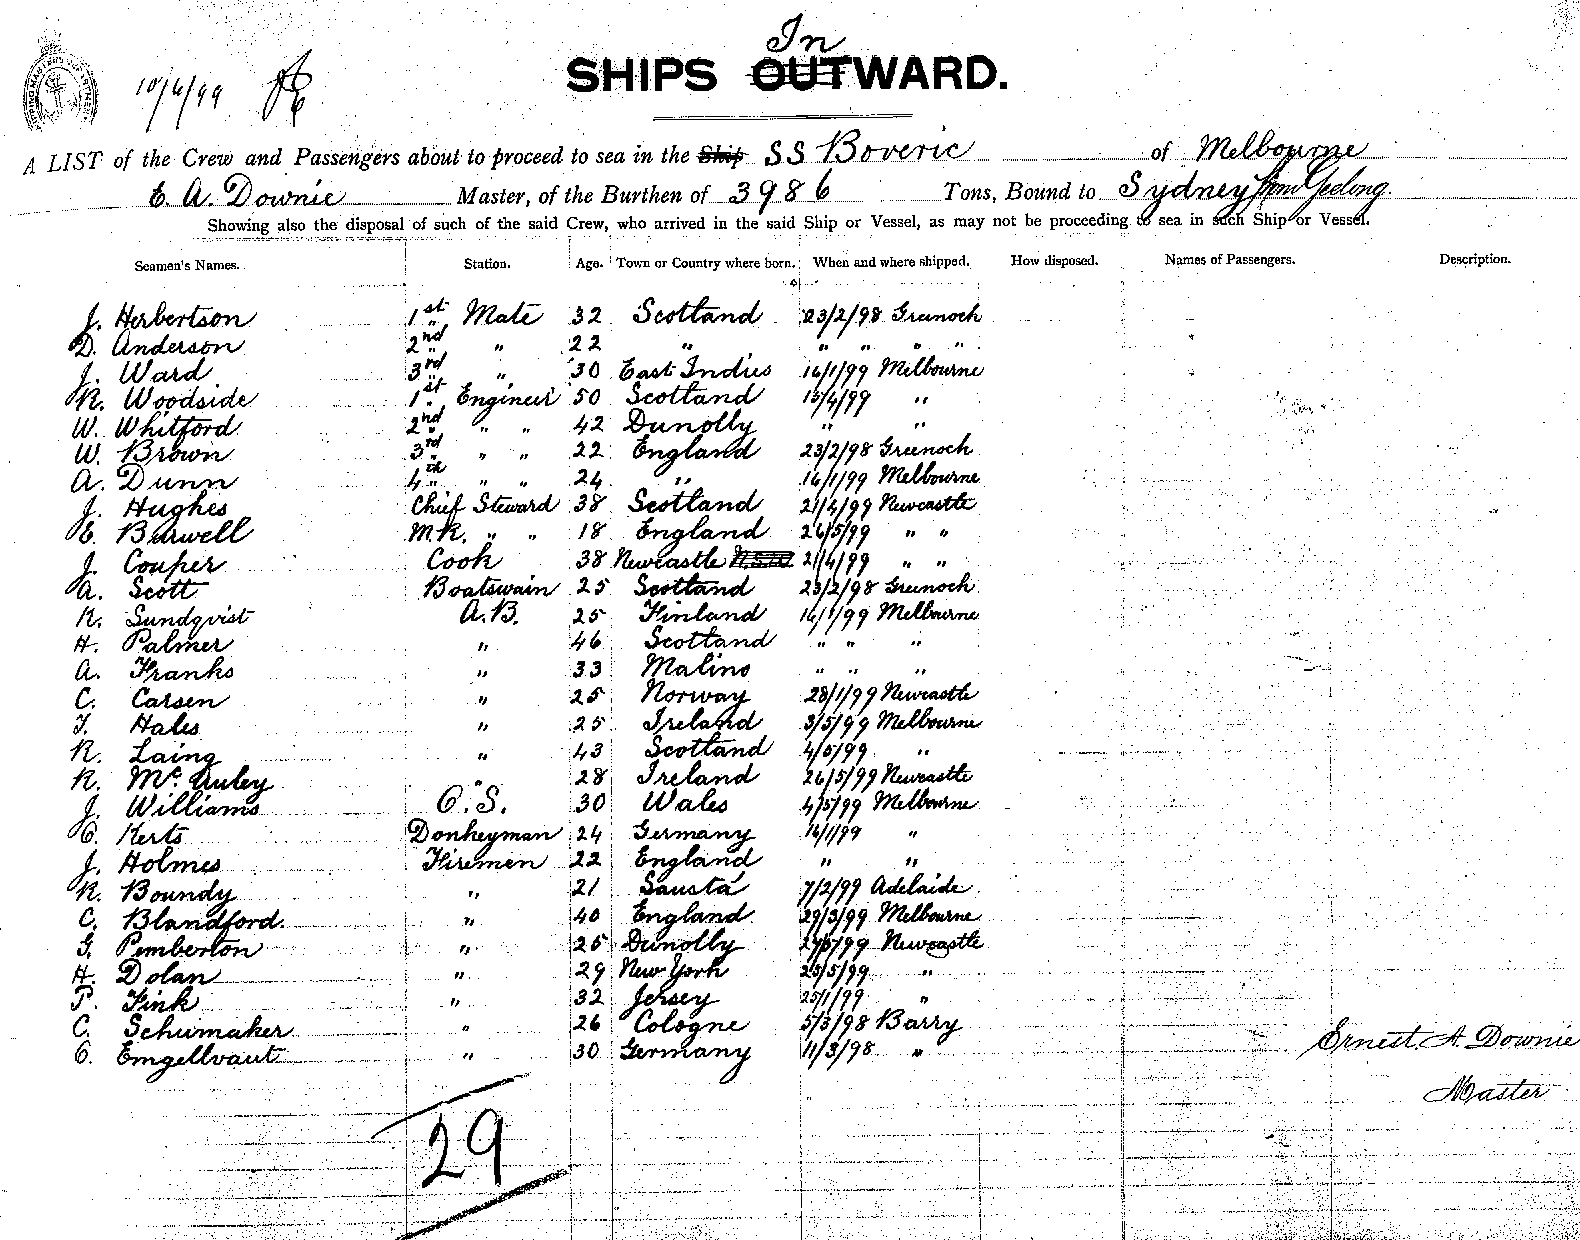 In
SHIPS OUTWARD.
10/6/99
A LIST of the Crew and Passengers about to proceed to sea in the Ship SS Boveric of Melbourne
E. A. Downie Master, of the Burthen of 3986 Tons, Bound to Sydney from Geelong.
Showing also the disposal of such of the said Crew, who arrived in the said Ship or Vessel, as may not be proceeding to sea in such Ship or Vessel.
Seamen's Names. Station. Age. Town or Country where born. When and where shipped. How disposed. Names of Passengers. Description.
J. Herbertson 1st Mate 32 Scotland 23/2/98 Greenoch
D. Anderson 2nd " 22 " " " " "
J. Ward 3rd " 30 East Indies 16/1/99 Melbourne
R. Woodside 1st Engineer 50 Scotland 13/4/99 "
W. Whitford 2nd " " 42 Dunolly " "
W. Brown 3rd " " 22 England 23/2/98 Greenoch
A. Dunn 4th " " 24 " 16/1/99 Melbourne
J. Hughes Chief Steward 38 Scotland 21/4/99 Newcastle
E. Burwell M.R. " " 18 England 26/5/99 " "
J. Couper Cook 38 Newcastle 21/4/99 " "
A. Scott Boatswain 25 Scotland 23/2/98 Greenoch
R. Sundqvist A.B. 25 Finland 16/1/99 Melbourne
H. Palmer " 46 Scotland " " "
A. Franks " 33 Malino " " "
C. Carsen " 25 Norway 28/1/99 Newcastle
T. Hales " 25 Ireland 3/5/99 Melbourne
R. Laing " 43 Scotland 4/5/99 "
R. McAuley " 28 Ireland 26/5/99 Newcastle
J. Williams O.S. 30 Wales 4/5/99 Melbourne
O. Kerts Donkeyman 24 Germany 16/1/99 "
J. Holmes Firemen 22 England " "
R. Boundy " 21 7/2/99 Adelaide
C. Blandford " 40 England 29/3/99 Melbourne
G. Pemberton " 25 Dunolly 27/5/99 Newcastle
H. Dolan " 29 New York 25/5/99 "
P. Fink " 32 Jersey 25/1/99 "
C. Schumaker " 26 Cologne 5/3/98 Barry
O. Emgellvaut " 30 Germany 11/3/98 "
Ernest A. Downie
Master
29